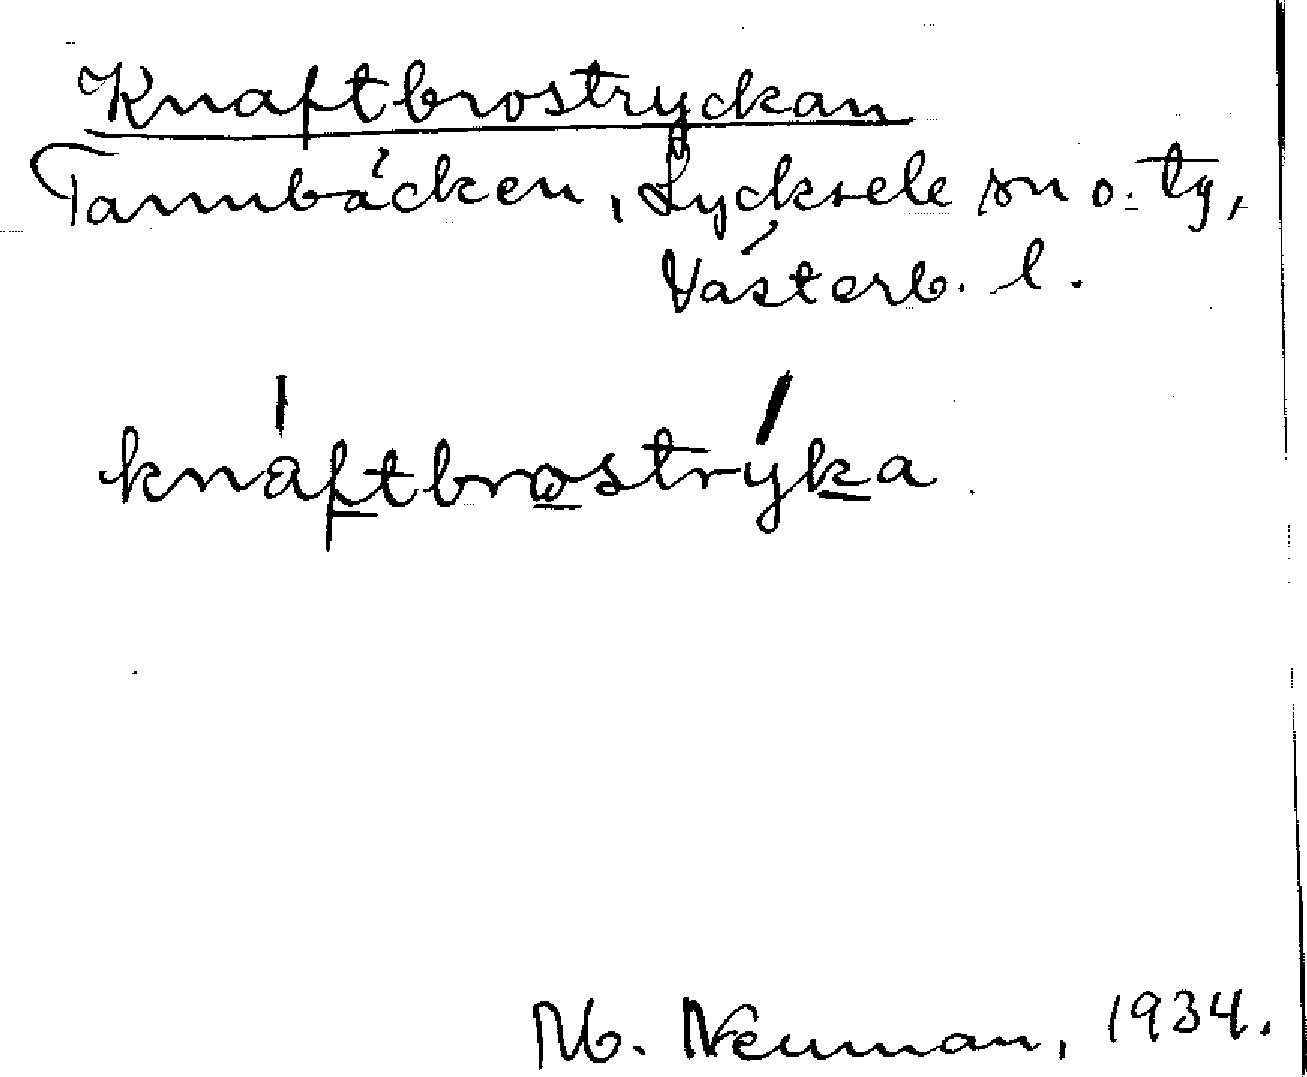 Knaftbrostryckan
Tannbäcken, Lycksele sn o. tg,
Västerb. l.
knaftbrostryka
M. Neuman, 1934.